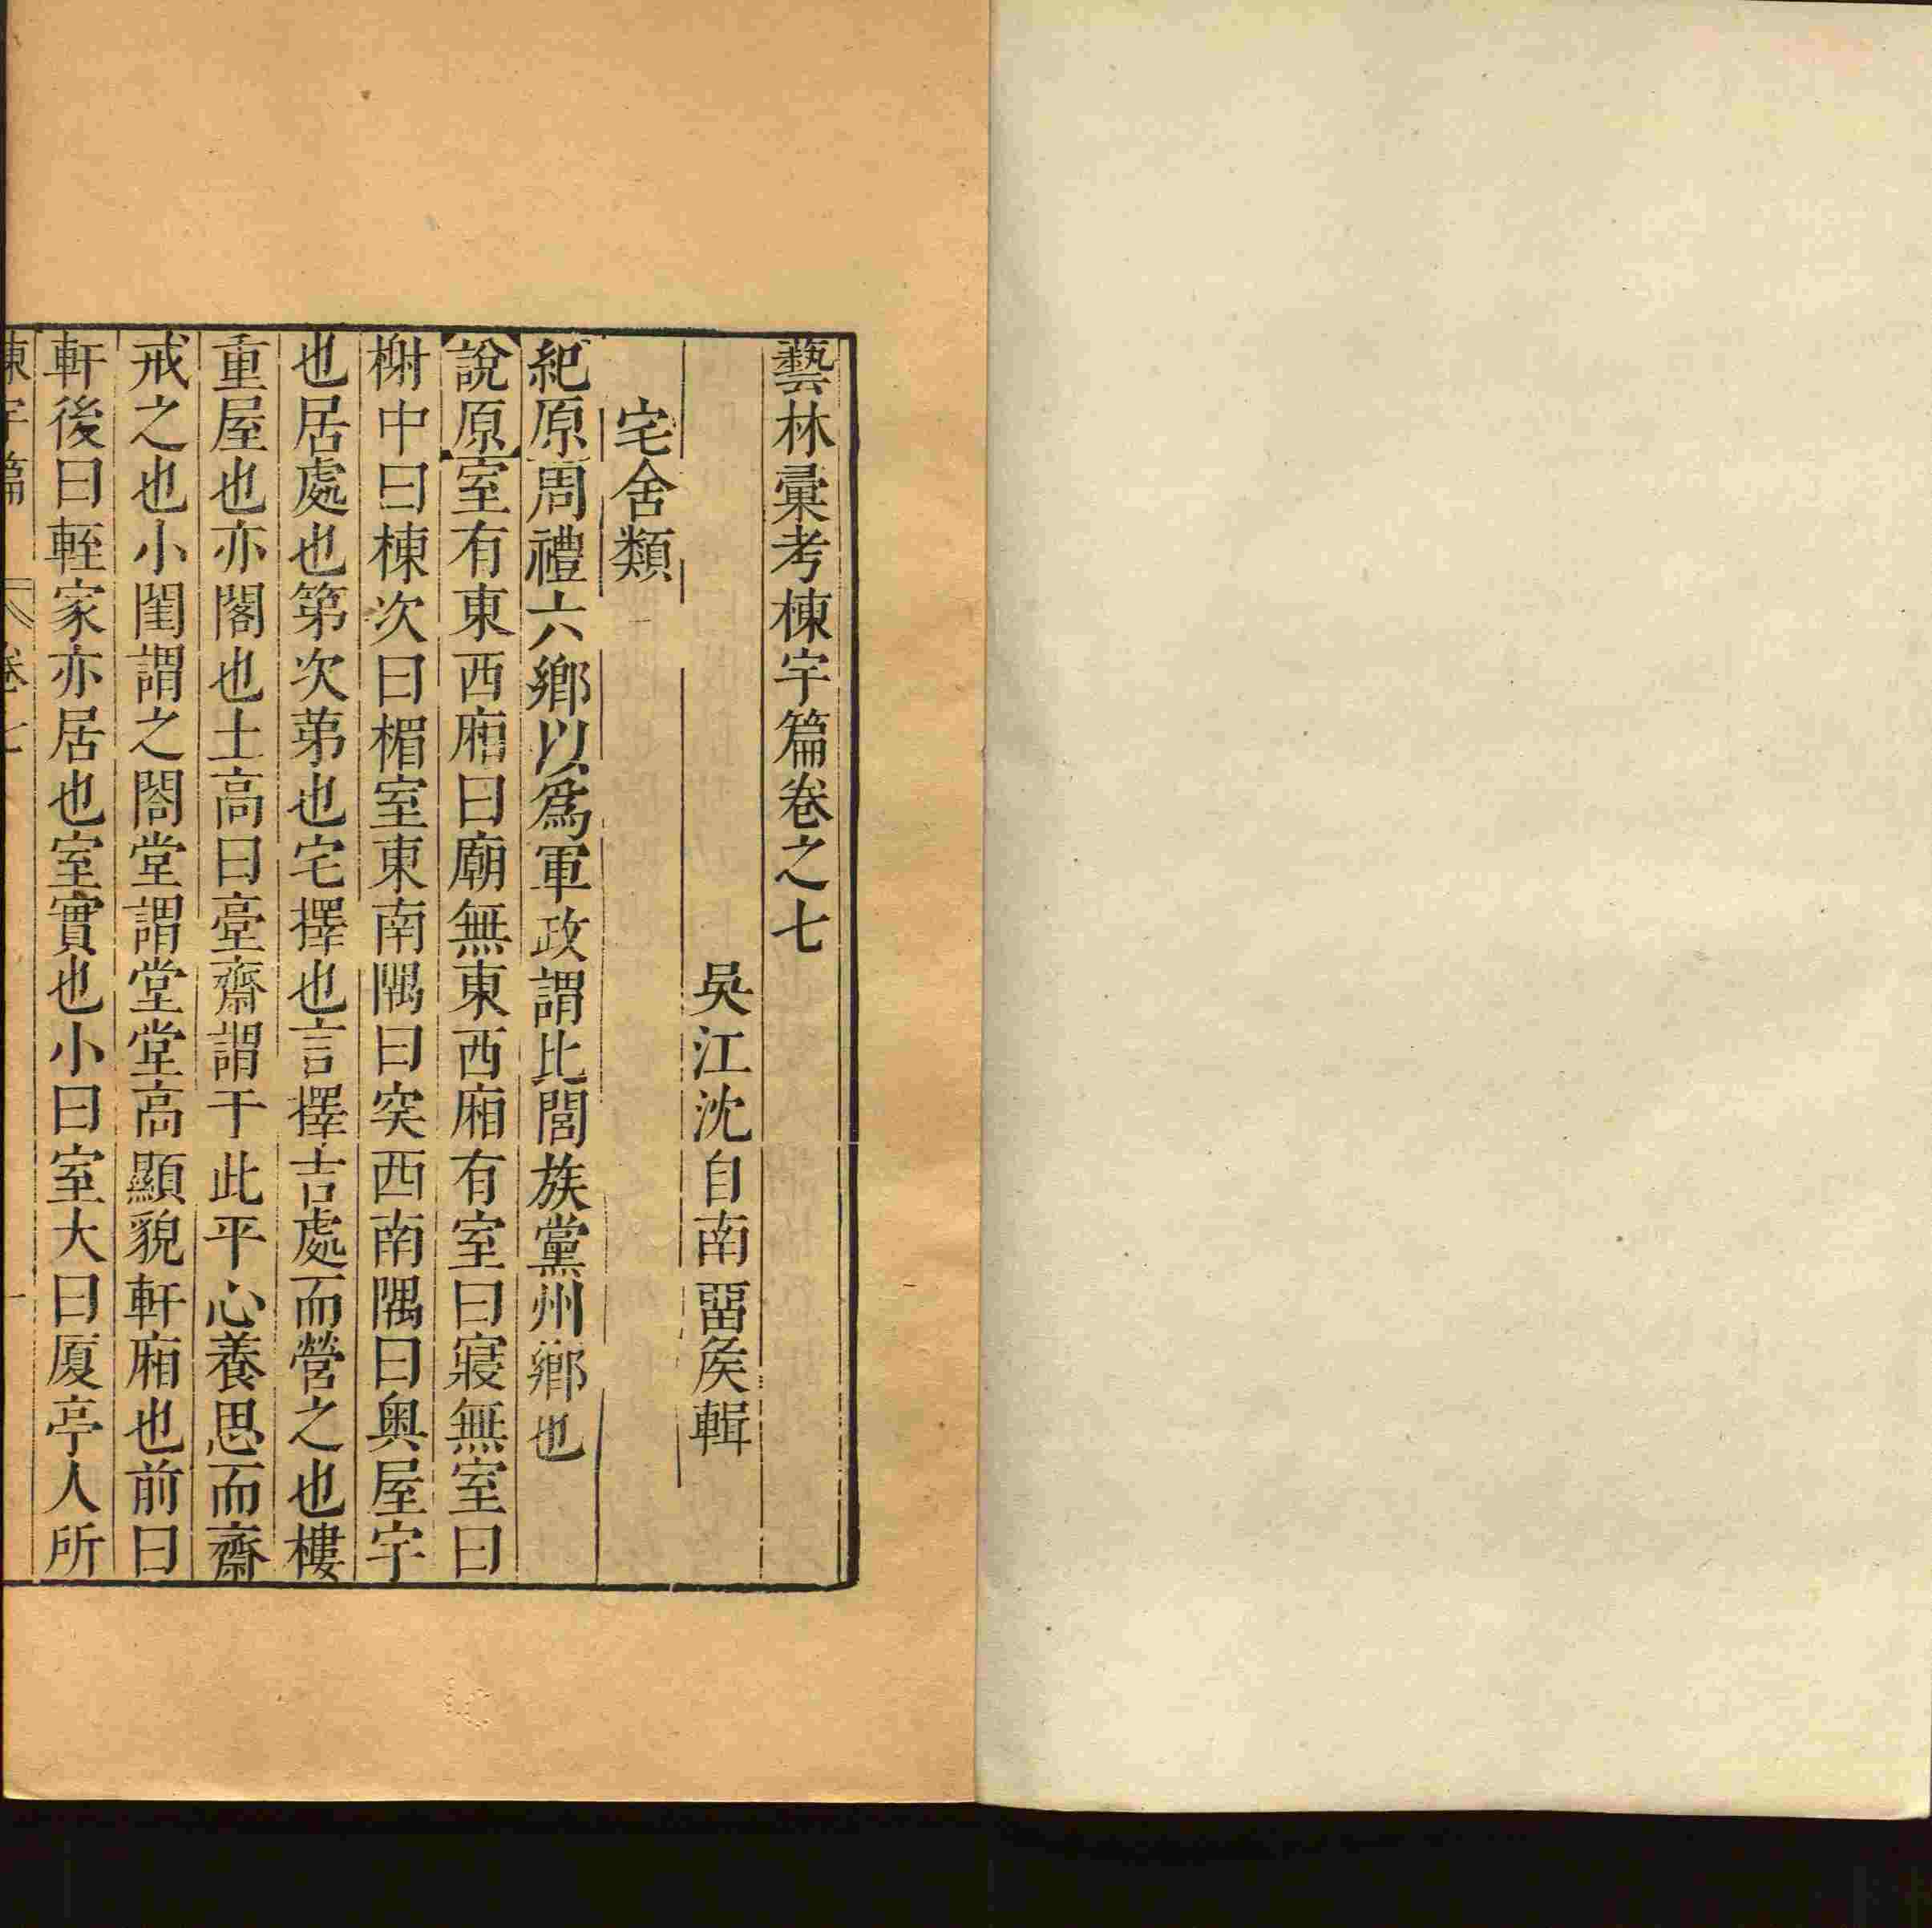 藝林彙考棟宇篇卷之七
吳江沈自南畱矦輯
宅舍類
紀原周禮六鄉以爲軍政謂比閭族黨州鄉也
說原室有東西廂曰廟無東西廂有室曰寢無室曰
榭中曰棟次曰楣室東南隅曰窔西南隅曰奥屋宇
也居處也第次苐也宅擇也言擇吉處而營之也樓
重屋也亦閣也土高曰臺齋謂于此平心養思而齋
戒之也小閨謂之閤堂謂堂堂高顯貌軒廂也前曰
軒後曰輊家亦居也室實也小曰室大曰厦亭人所
棟宇篇 卷七 一